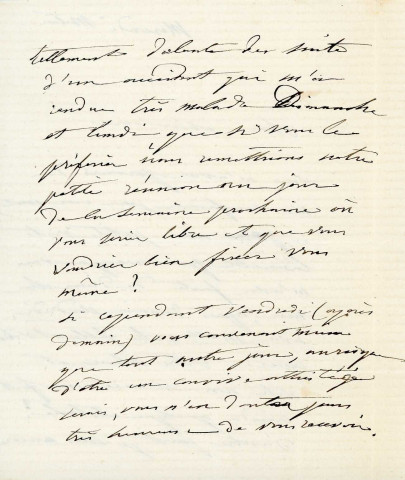 tellement dolente des suites
d'un accident qui m'a
rendue très malade Dimanche
et Lundi que si vous le
préfériez nous remettrions notre
petite réunion au jour
de la semaine prochaine où
vous seriez libre et que vous
voudriez bien fixer vous
même ?
si cependant vendredi (après
demain) vous convenait mieux
que tout autre jour, au risque
d'être un convive attristé je
serais, vous n'en doutez pas
très heureuse de vous recevoir.